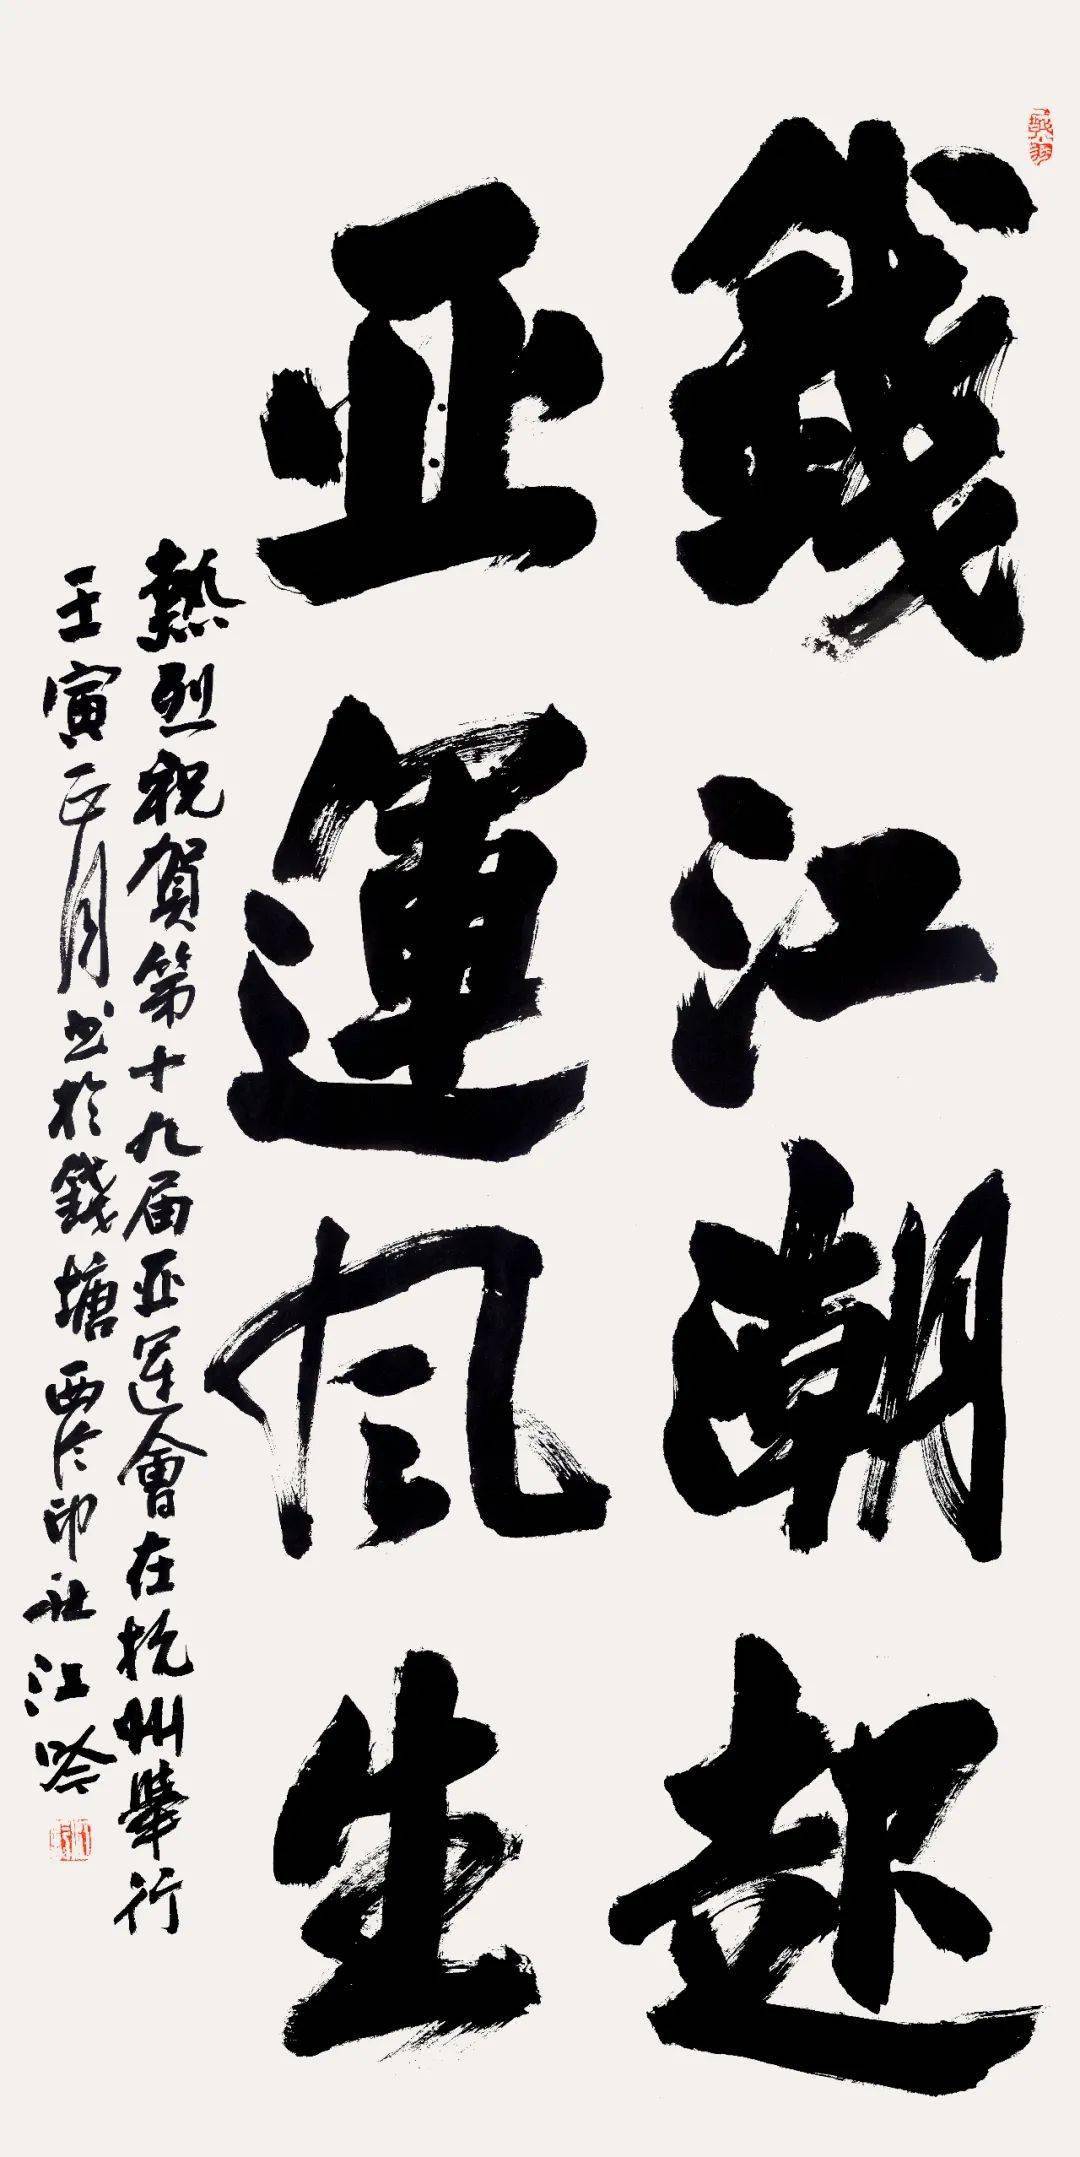 錢江潮起
亚運风生
熱烈祝贺第十九届亚運會在杭州舉行
壬寅正月书於錢塘西泠印社江吟